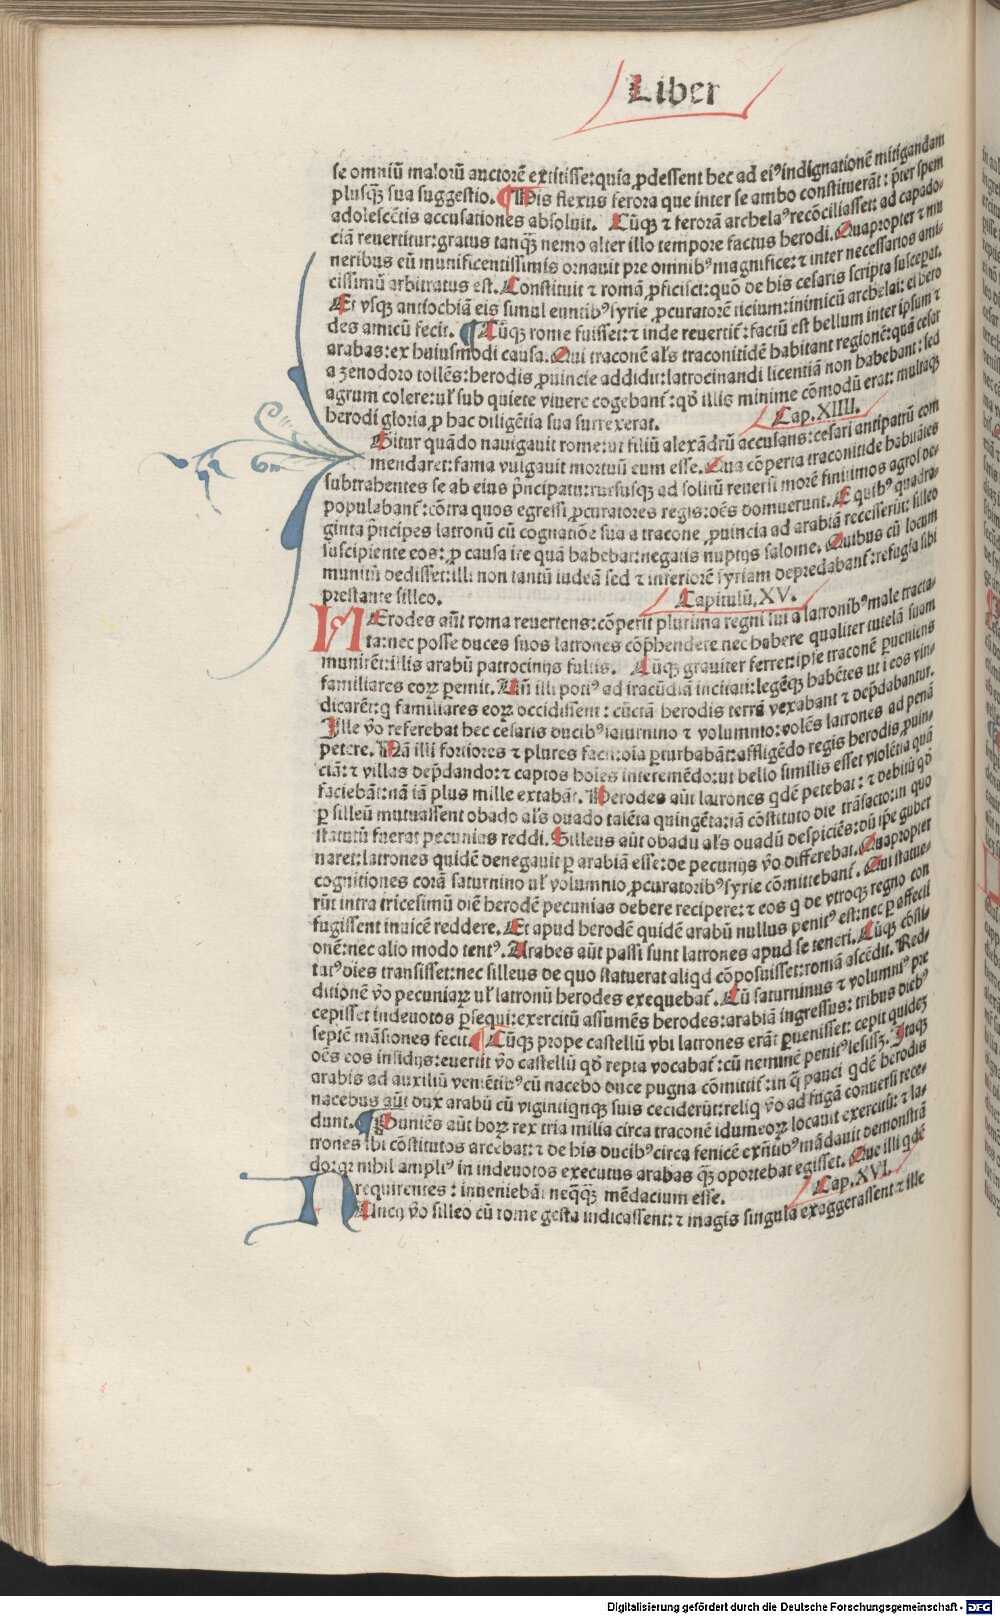 Liber
se omniū maloꝝ auctorē extitisse: quia ꝓdessent hec ad eiꝰ indignationē mitigandam
plusqȝ sua suggestio. His flexus ferora que inter se ambo constituerāt: p̄ter spem
adolescētis accusationes absoluit. Cūqȝ ⁊ ferorā archelaꝰ recōciliasset: ad capado⸗
ciā reuertitur: gratus tanqȝ nemo alter illo tempore factus herodi. Quapropter ⁊ mu
neribus eū munificentissimis ornauit pre omnibꝰ magnifice: ⁊ inter necessarios ami⸗
cissimū arbitratus est. Constituit ⁊ romā ꝓficisci: quō de his cesaris scripta susceperat.
Et vsqȝ antiochiā eis simul euntibꝰ syrie ꝓcuratorē ticium: inimicū archelai: ei vero
des amicū fecit. Cūqȝ rome fuisset: ⁊ inde reuertit̄: factū est bellum inter ipsum ⁊
arabas: ex huiusmodi causa. Qui traconē als traconitidē habitant regionē: quā cesar
a zenodoro tollēs: herodis ꝓuincie addidit: latrocinandi licentiā non habebant: sed
agrum colere: ul' sub quiete viuere cogebant̄: qd̄ illis minime cōmodū erat: multaqȝ
herodi gloria ꝓ hac diligētia sua surrexerat.
Cap. XIIII.
Gitur quādo nauigauit rome: ut filiū alexādrū accusans: cesari antipatrū com
mendaret: fama vulgauit mortuū eum esse. Qua cōperta traconitide habitātes
subtrahentes se ab eius p̄ncipatu: rursusqȝ ad solitū reuersi morē finitimos agros de⸗
populabant̄: cōtra quos egressi ꝓcuratores regis: oēs domuerunt. E quibꝰ quadra⸗
ginta p̄ncipes latronū cū cognatiōe sua a tracone ꝓuincia ad arabiā recesserūt: silleo
suscipiente eos: ꝓ causa ire quā habebat: negatis nuptijs salome. Quibus cū locum
munitū dedisset: illi non tantū iudeā sed ⁊ inferiorē syriam depredabant̄: refugia sibi
prestante silleo.
Capitulū. XV.
HErodes aūt roma reuertens: cōperit plurima regni sui a latronibꝰ male tracta⸗
ta: nec posse duces suos latrones cōp̄hendere nec habere qualiter tutelā suam
munirēt: illis arabū patrocinijs fultis. Cūqȝ grauiter ferret: ipse traconē ꝑueniens
familiares eoꝝ ꝑemit. Un̄ illi potiꝰ ad iracūdiā incitati: legēqȝ habētes ut i eos vin⸗
dicarēt: q familiares eoꝝ occidissent: cūctā herodis terrā vexabant ⁊ dep̄dabantur.
Ille v̄o referebat hec cesaris ducibꝰ saturnino ⁊ volumnio: volēs latrones ad penā
petere. Nā illi fortiores ⁊ plures facti: oīa ꝑturbabāt: affligēdo regis herodis ꝓuin⸗
ciā: ⁊ villas dep̄dando: ⁊ captos hoīes interemēdo: ut bello similis esset violētia quā
faciebāt: nā iā plus mille extabāt. Herodes aūt latrones qdē petebat: ⁊ debitū qd̄
ꝑ silleū mutuassent obado als ouado talēta quingēta: iā cōstituto die trāsacto: in quo
statutū fuerat pecunias reddi. Silleus aūt obadū als ouadū despiciēs: dū ip̄e guber
naret: latrones quidē denegauit ꝑ arabiā esse: de pecunijs v̄o differebat. Quapropter
cognitiones corā saturnino ul' volumnio ꝓcuratoribꝰ syrie cōmittebant̄. Qui statue⸗
rūt intra tricesimū diē herodē pecunias debere recipere: ⁊ eos q de vtroqȝ regno con
fugissent inuicē reddere. Et apud herodē quidē arabū nullus penitꝰ est: nec ꝑ affecti
onē: nec alio modo tentꝰ. Arabes aūt passi sunt latrones apud se teneri. Cūqȝ cōsti⸗
tutꝰ dies transisset: nec silleus de quo statuerat aliqd cōposuisset: romā ascēdit. Red⸗
ditionē v̄o pecuniaꝝ ul' latronū herodes exequebat̄. Cū saturninus ⁊ volumniꝰ pre
cepisset indeuotos ꝑsequi: exercitū assumēs herodes: arabiā ingressus: tribus diebꝰ
septē māsiones fecit. Cūqȝ prope castellū vbi latrones erāt ꝑuenisset: cepit quidē
oēs eos insidijs: euertit v̄o castellū qd̄ repta vocabat̄: cū neminē penitꝰ lesisset. Itaqȝ
arabis ad auxiliū veniētibꝰ cū nacebo duce pugna cōmittit̄: in q̄ pauci qdē herodis
nacebus aūt dux arabū cū vigintiqnqȝ suis ceciderūt: reliq v̄o ad fugā conuersi rece⸗
dunt. Puniēs aūt hoꝝ rex tria milia circa traconē idumeoꝝ locauit exercitū: ⁊ la⸗
trones ibi cōstitutos arcebat: ⁊ de his ducibꝰ circa fenicē exn̄tibꝰ mādauit demonstrā
do: qr nihil ampliꝰ in indeuotos executus arabas qȝ oportebat egisset. Que illi qdē
requirentes: inueniebāt neqȝqȝ mēdacium esse.
Cap. XVI.
NUncij v̄o silleo cū rome gesta indicassent: ⁊ magis singula exaggerassent ⁊ ille
Digitalisierung gefördert durch die Deutsche Forschungsgemeinschaft - DFG